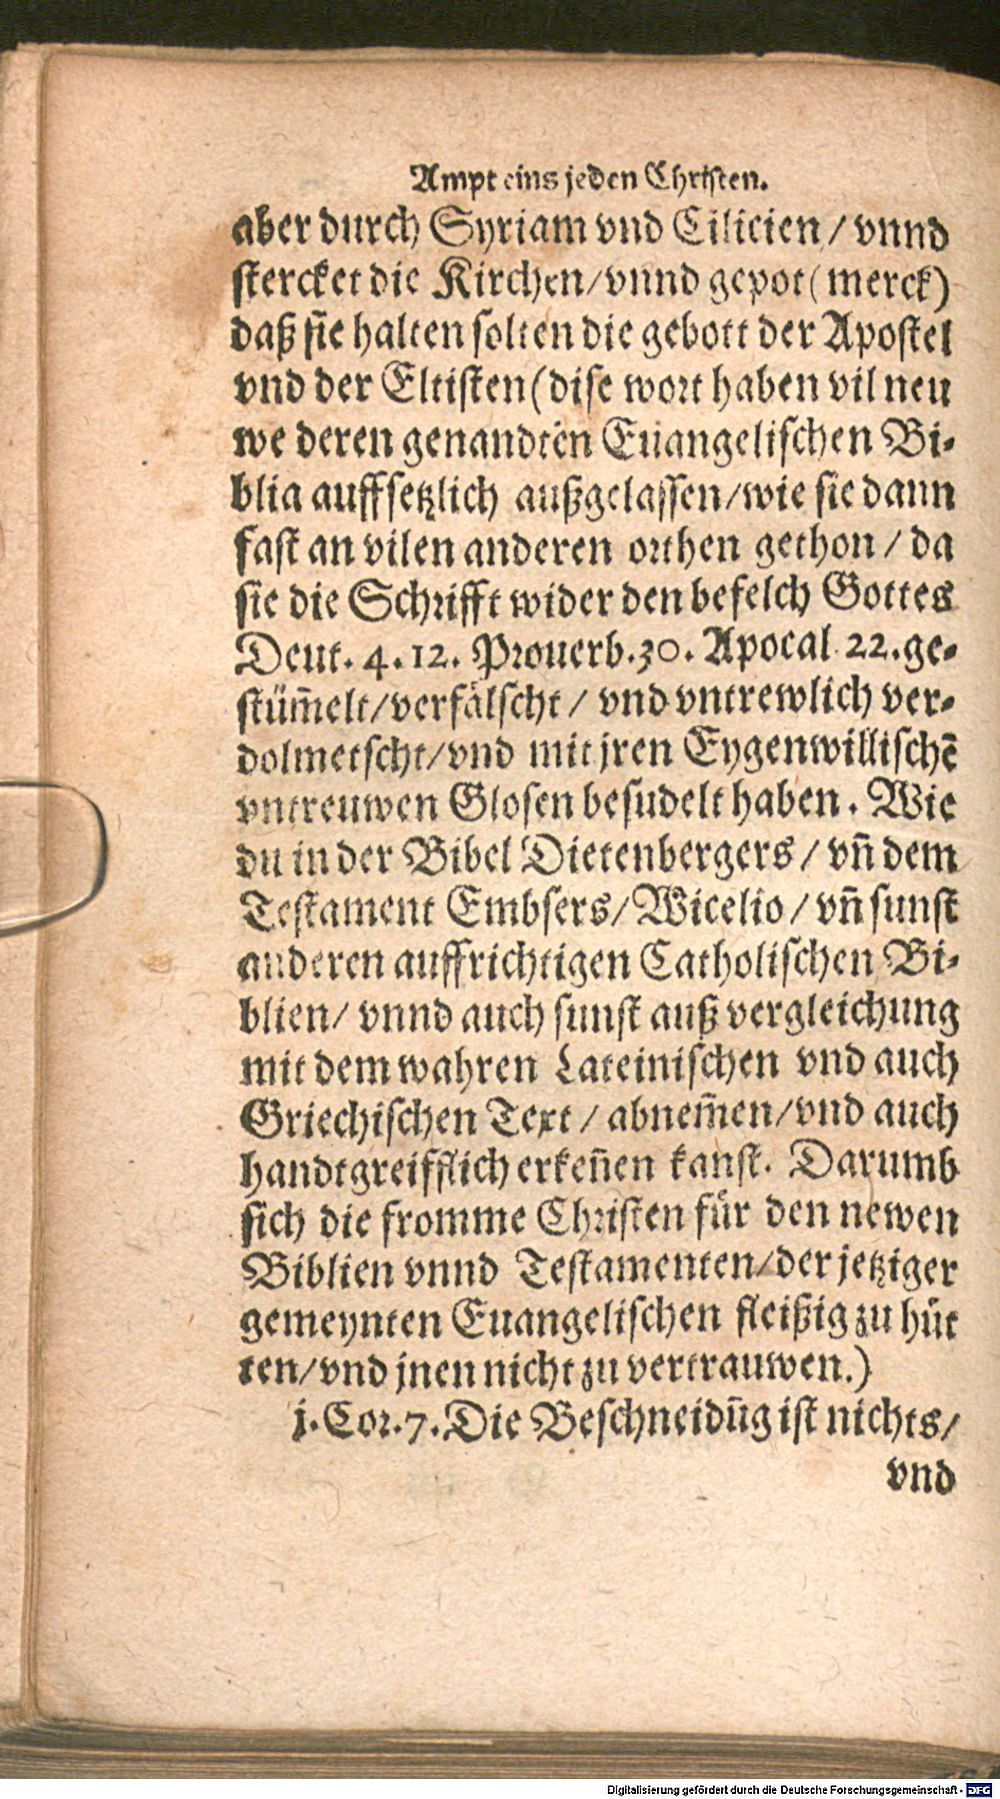 Ampt eins jeden Christen.
aber durch Syriam vnd Cilicien / vnnd
stercket die Kirchen/vnnd gepot (merck)
daß sie halten solten die gebott der Apostel
vnd der Eltisten (dise wort haben vil neu
we deren genandten Euangelischen Bi-
blia auffsetzlich außgelassen/wie sie dann
fast an vilen anderen orthen gethon / da
sie die Schrifft wider den befelch Gottes
Deut. 4.12. Prouerb.30. Apocal 22.ge-
stüm̄elt/verfälscht / vnd vntrewlich ver-
dolmetscht/vnd mit jren Eygenwillischē
vntreuwen Glosen besudelt haben. Wie
du in der Bibel Dietenbergers / vn̄ dem
Testament Embsers/Wicelio / vn̄ sunst
anderen auffrichtigen Catholischen Bi-
blien/ vnnd auch sunst auß vergleichung
mit dem wahren Lateinischen vnd auch
Griechischen Text / abnem̄en/vnd auch
handtgreifflich erken̄en kanst. Darumb
sich die fromme Christen für den newen
Biblien vnnd Testamenten/der jetziger
gemeynten Euangelischen fleißig zu hüt
ten/vnd jnen nicht zu vertrauwen.)
j.Cor.7.Die Beschneidūg ist nichts/
vnd
Digitalisierung gefördert durch die Deutsche Forschungsgemeinschaft - DFG